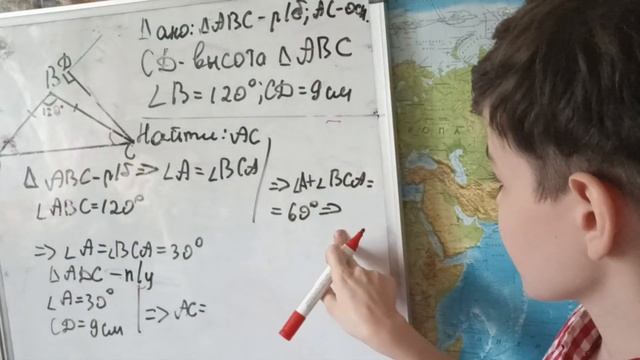 Дано: ΔABC - р/б; AC-осн.
CD - высота ΔABC
∠B = 120°; CD = 9 см
Найти: AC
B
D
120°
C
Δ ABC - р/б => ∠A = ∠BCA
∠ABC = 120°
=> ∠A+∠BCA =
= 60° =>
=> ∠A = ∠BCA = 30°
Δ ADC - п/у
∠A = 30°
CD = 9 см
=> AC =